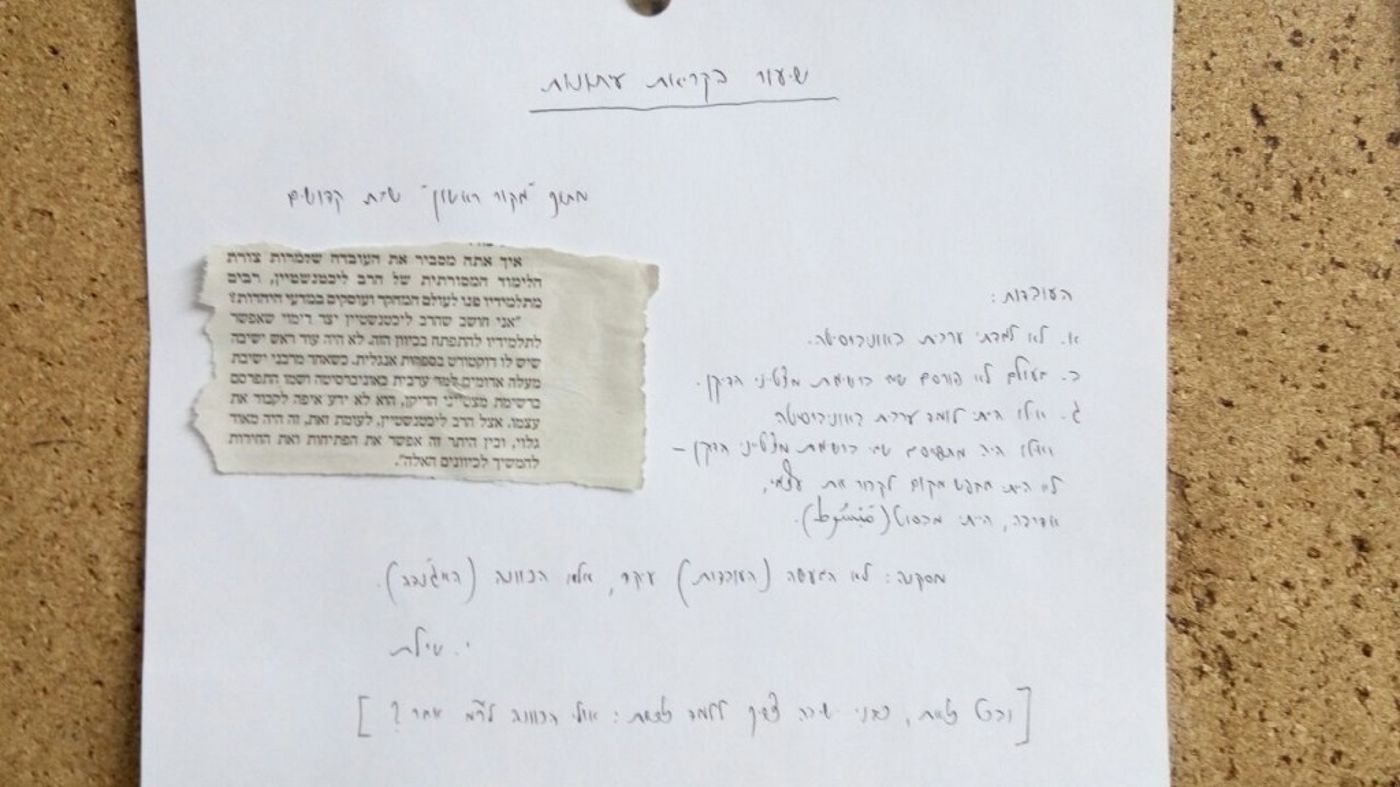 שיעור בקריאת עתונות
מתוך "מקור ראשון" שבת קדושים
איך אתה מסביר את העובדה שלמרות צורת
הלימוד המסורתית של הרב ליכטנשטיין, רבים
מתלמידיו פנו לעולם המחקר ועוסקים במדעי היהדות?
"אני חושב שהרב ליכטנשטיין יצר דימוי שאפשר
לתלמידיו להתפתח בכיוון הזה. לא היה עוד ראש ישיבה
שיש לו דוקטורט בספרות אנגלית. כשאחד מרבני ישיבת
מעלה אדומים למד ערבית באוניברסיטה ושמו התפרסם
ברשימת מצטייני הדיקן, הוא לא ידע איפה לקבור את
עצמו. אצל הרב ליכטנשטיין, לעומת זאת, זה היה מאוד
גלוי, ובין היתר זה אפשר את הפתיחות ואת החירות
להמשיך לכיוונים האלה".
העובדות:
א. לא למדתי ערבית באוניברסיטה.
ב. מעולם לא פורסם שמי ברשימת מצטייני הדיקן.
ג. אילו הייתי לומד ערבית באוניברסיטה
ואילו היה מתפרסם שמי ברשימת מצטייני הדיקן –
לא הייתי מחפש מקום לקבור את עצמי,
אדרבה, הייתי מבסוט (مبسوط).
מסקנה: לא המעשה (העובדות) עיקר, אלא הכוונה (האג'נדה).
י. שילת
[ובכל זאת, כבני ישיבה צריך ללמד זכות: אולי הכוונה לר"מ אחר?]